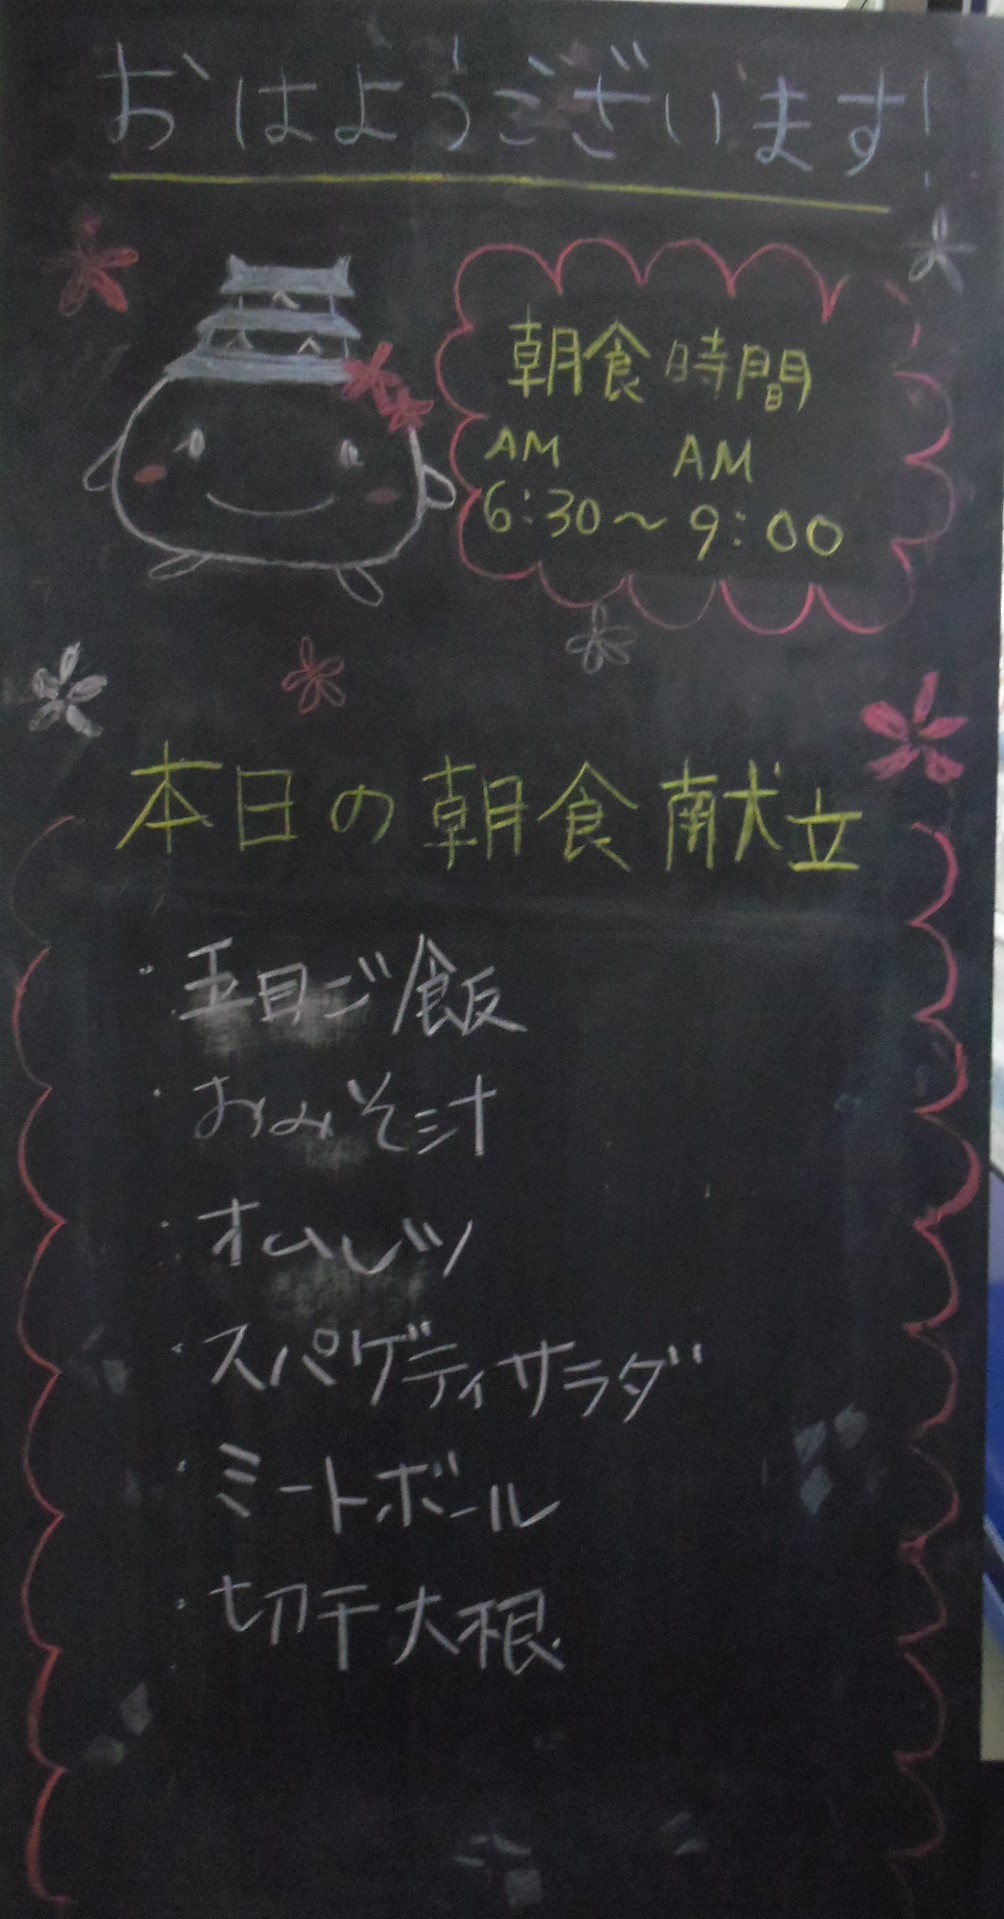 おはようございます!
朝食時間
AM AM
6:30～9:00
本日の朝食献立
・五目ご飯
・おみそ汁
・オムレツ
・スパゲティサラダ
・ミートボール
・切干大根